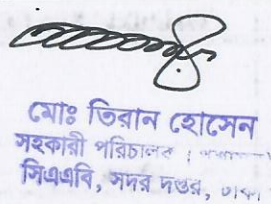 মোঃ তিরান হোসেন
সহকারী পরিচালক
সিএএবি, সদর দপ্তর, ঢাকা